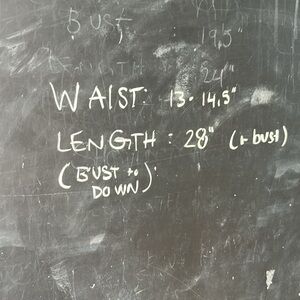 BUST : 19.5"
LENGTH : 24"
WAIST: 13 - 14.5"
LENGTH : 28" (+ bust)
(BUST to
DOWN)